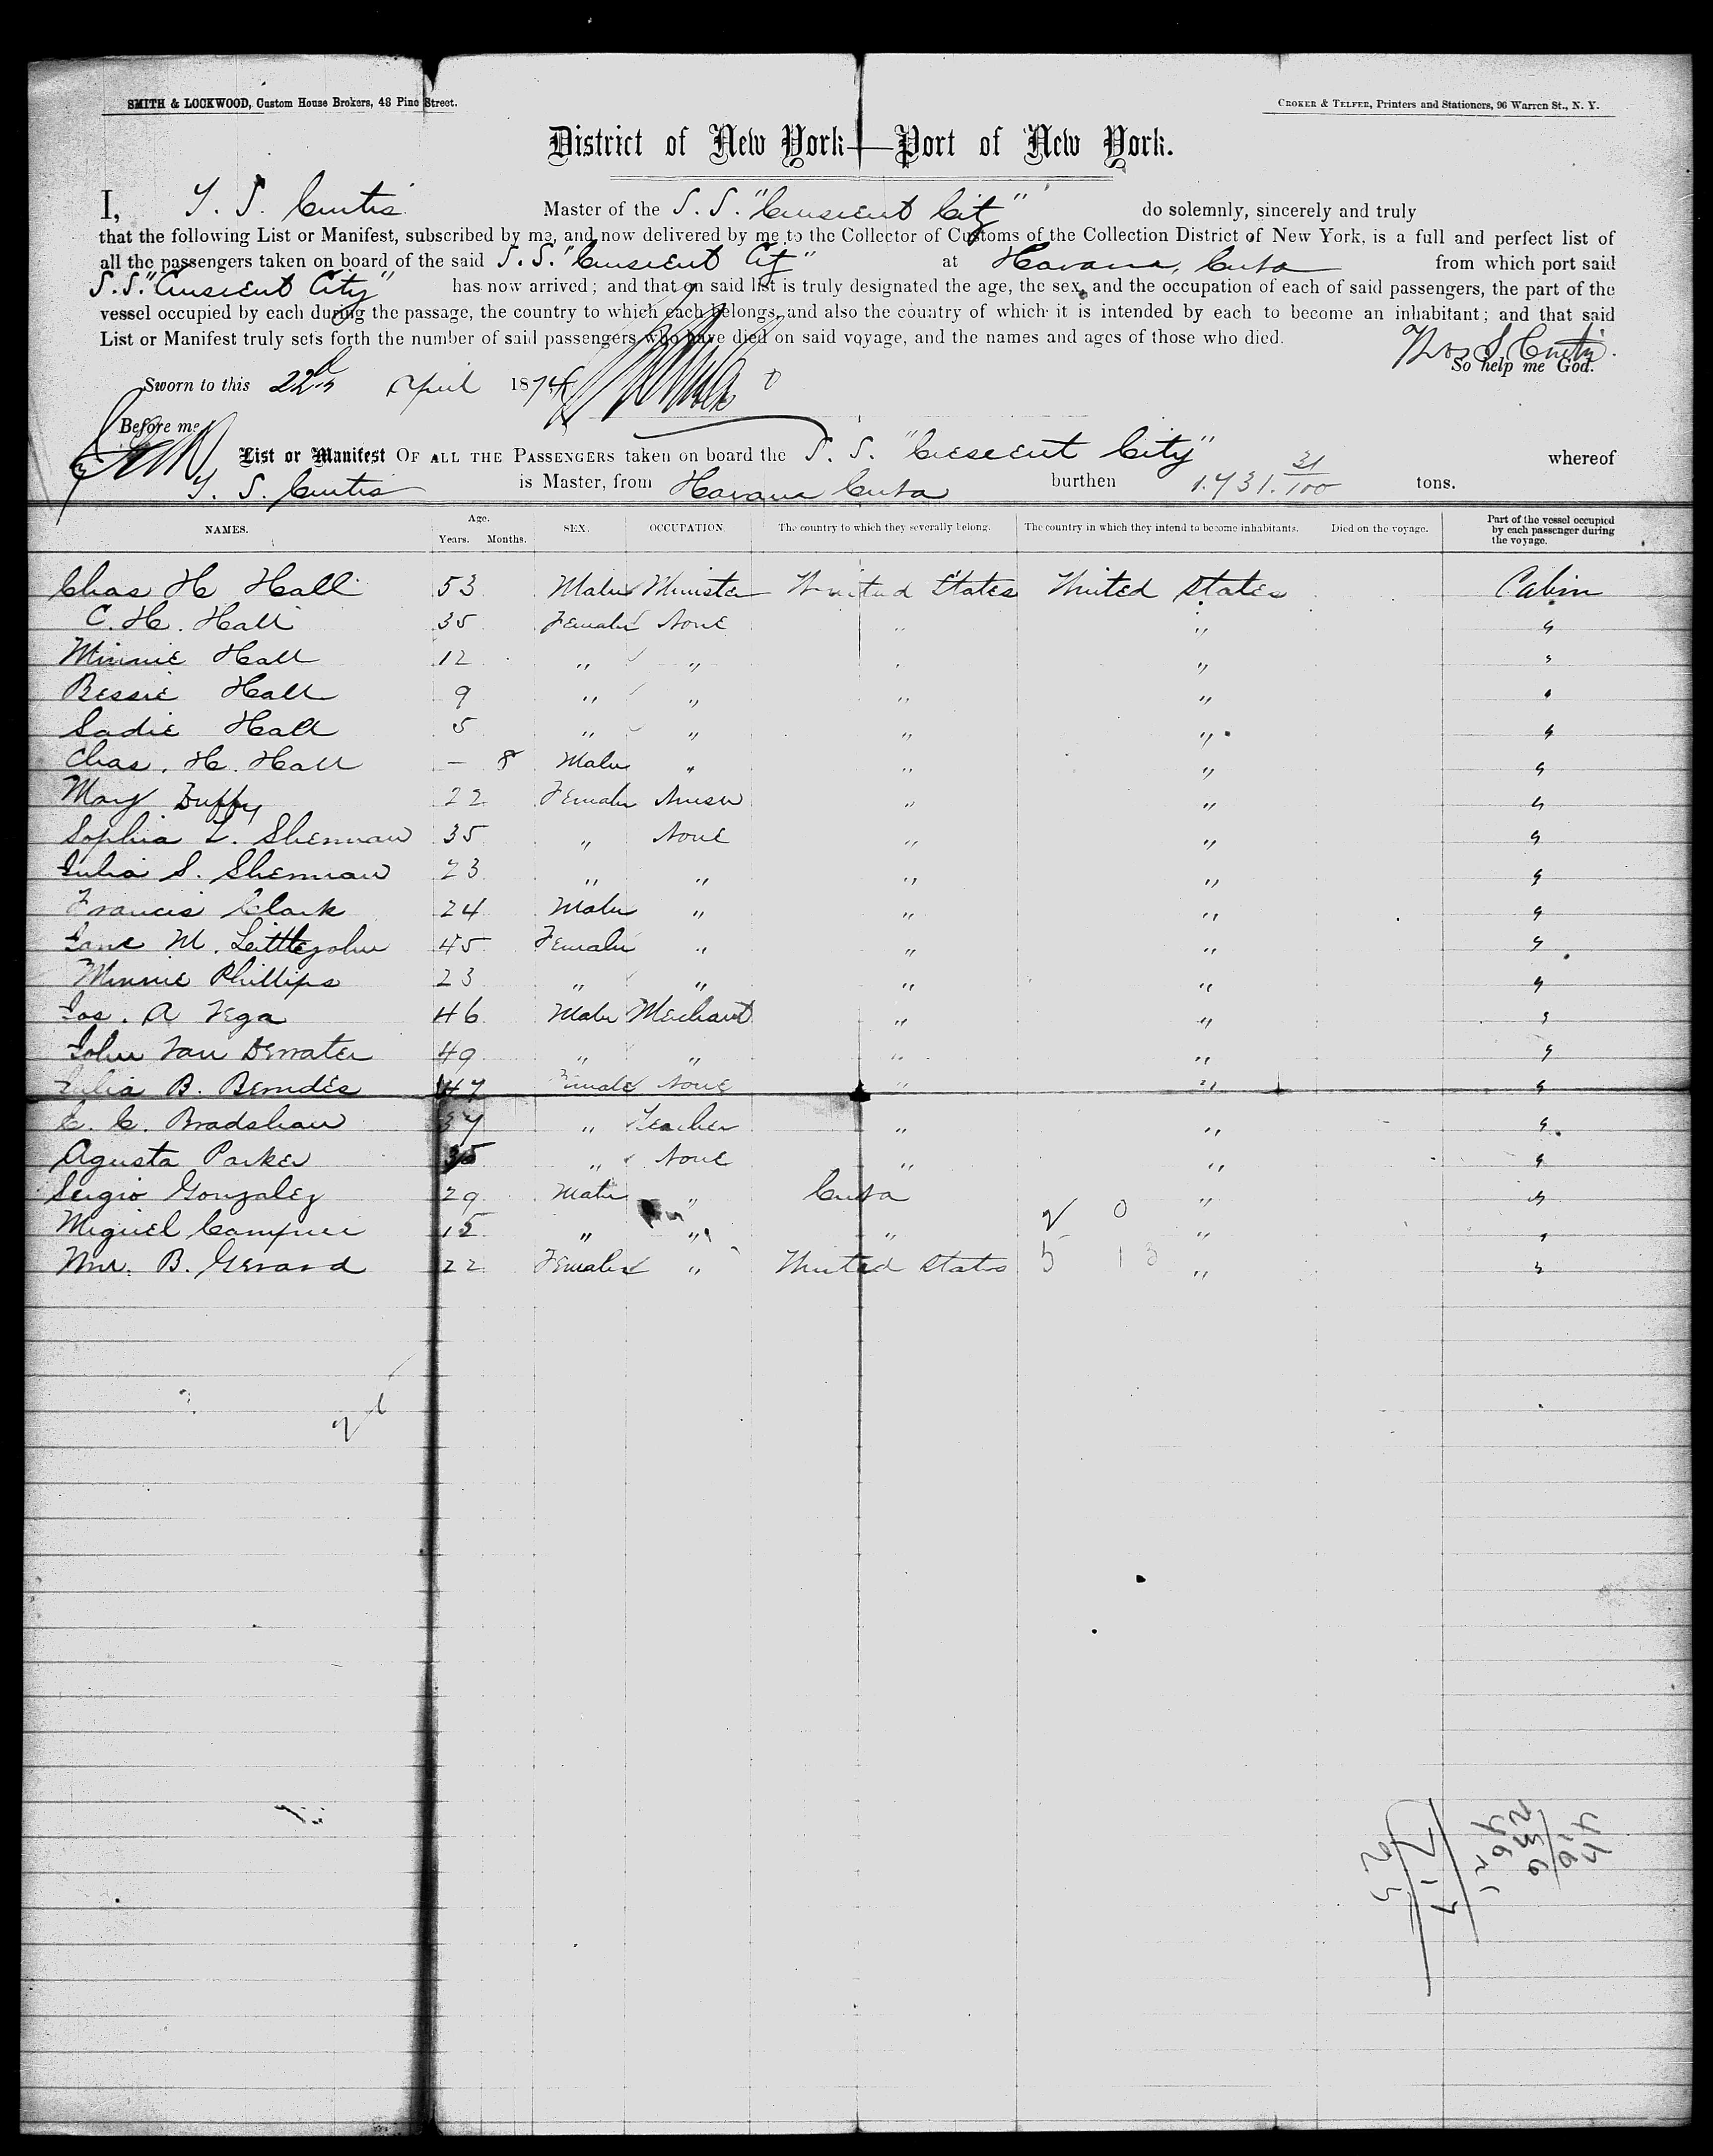 SMITH & LOCKWOOD, Custom House Brokers, 48 Pine Street.
CROKER & TELFER, Printers and Stationers, 96 Warren St., N. Y.
District of New York—Port of New York.
I, T. S. Curtis Master of the S. S. "Crescent City" do solemnly, sincerely and truly
that the following List or Manifest, subscribed by me, and now delivered by me to the Collector of Customs of the Collection District of New York, is a full and perfect list of
all the passengers taken on board of the said S. S. "Crescent City" at Havana, Cuba from which port said
S. S. "Crescent City" has now arrived; and that on said list is truly designated the age, the sex, and the occupation of each of said passengers, the part of the
vessel occupied by each during the passage, the country to which each belongs, and also the country of which it is intended by each to become an inhabitant; and that said
List or Manifest truly sets forth the number of said passengers who have died on said voyage, and the names and ages of those who died.
Thos S. Curtis.
So help me God.
Sworn to this 22d April 1874
Before me
List or Manifest OF ALL THE PASSENGERS taken on board the S. S. "Crescent City" whereof
T. S. Curtis is Master, from Havana Cuba burthen 1.731. 31/100 tons.
NAMES. Age. Years. Months. SEX. OCCUPATION. The country to which they severally belong. The country in which they intend to become inhabitants. Died on the voyage. Part of the vessel occupied by each passenger during the voyage.
Chas H Hall 53 Male Minister United States United States Cabin
C. H. Hall 35 Female None " " "
Minnie Hall 12 " " " " "
Bessie Hall 9 " " " " "
Sadie Hall 5 " " " " "
Chas. H. Hall — 8 Male " " " "
Mary Duffy 22 Female Nurse " " "
Sophia L. Sherman 35 " None " " "
Julia S. Sherman 23 " " " " "
Francis Clark 24 Male " " " "
Jane M. Leittlejohn 45 Female " " " "
Minnie Phillips 23 " " " " "
Jos. A Vega 46 Male Merchant " " "
John Van Derrater 49 " " " " "
Julia B. Berndes 47 Female None " " "
C. C. Bradshaw 37 " Teacher " " "
Agusta Parker 35 " None " " "
Sergio Gonzalez 29 Male " Cuba " "
Miguel 15 " " " " "
B. Gerard 22 Female " United States " "